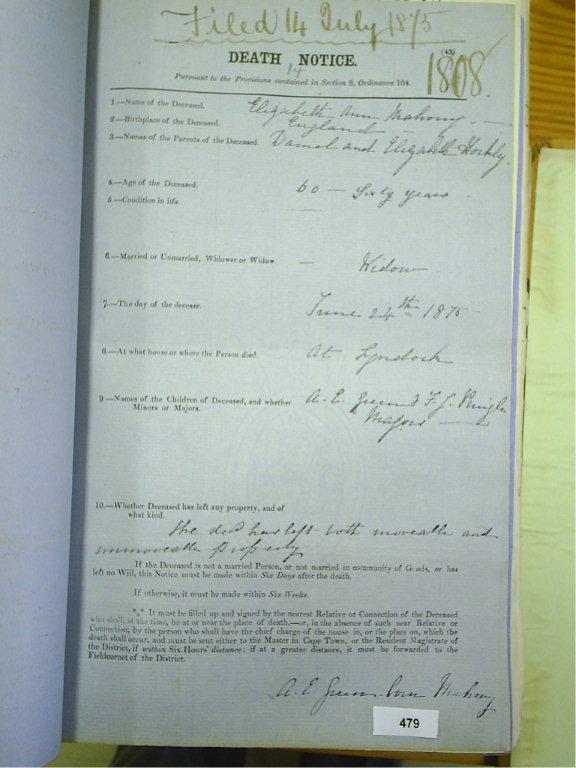 Filed 14 July 1875
(45)
DEATH NOTICE.
14
1808.
Pursuant to the Provisions contained in Section 9, Ordinance 104.
1.—Name of the Deceased. Elizabeth Ann Mahony
2.—Birthplace of the Deceased. England
3.—Names of the Parents of the Deceased. Daniel and Elizabeth Hockly
4.—Age of the Deceased. 60 — Sixty years
5.—Condition in life. —
6.—Married or Unmarried, Widower or Widow — Widow
7.—The day of the decease. June 24th 1875
8.—At what house or where the Person died. At Lyndoch
9.—Names of the Children of Deceased, and whether A. E. Green & F. J. Pringle
Minors or Majors. Majors —
10.—Whether Deceased has left any property, and of
what kind.
She dec'd has left both moveable and
immoveable property
If the Deceased is not a married Person, or not married in community of Goods, or has
left no Will, this Notice must be made within Six Days after the death.
If otherwise, it must be made within Six Weeks.
*** It must be filled up and signed by the nearest Relative or Connection of the Deceased
who shall, at the time, be at or near the place of death,—or, in the absence of such near Relative or
Connection, by the person who shall have the chief charge of the house in, or the place on, which the
death shall occur, and must be sent either to the Master in Cape Town, or the Resident Magistrate of
the District, if within Six Hours' distance: if at a greater distance, it must be forwarded to the
Fieldcornet of the District.
A. E Green born Mahony
479